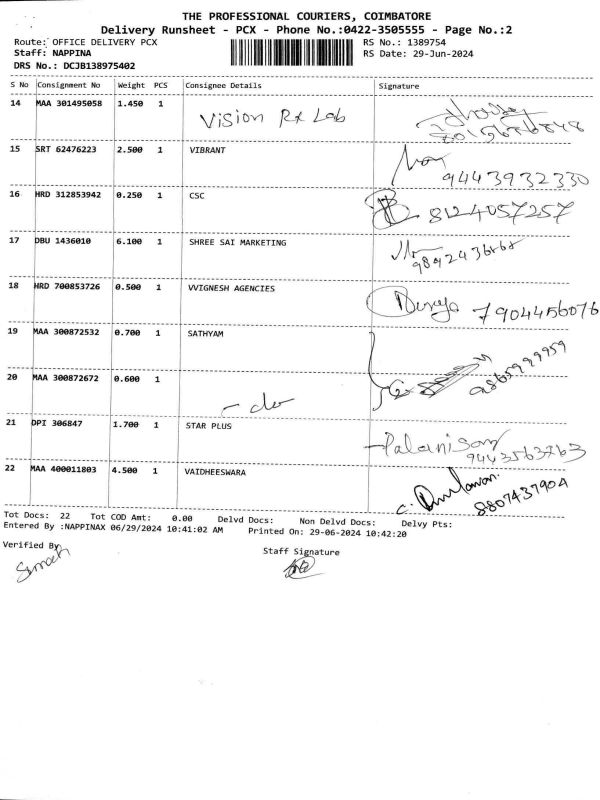 THE PROFESSIONAL COURIERS, COIMBATORE
Delivery Runsheet - PCX - Phone No.:0422-3505555 - Page No.:2
Route: OFFICE DELIVERY PCX RS No.: 1389754
Staff: NAPPINA RS Date: 29-Jun-2024
DRS No.: DCJB138975402
S No Consignment No Weight PCS Consignee Details Signature
14 MAA 301495058 1.450 1 Vision Rx Lab
15 SRT 62476223 2.500 1 VIBRANT
9443932330
16 HRD 312853942 0.250 1 CSC 8124057257
17 DBU 1436010 6.100 1 SHREE SAI MARKETING
18 HRD 700853726 0.500 1 VVIGNESH AGENCIES
7904456076
19 MAA 300872532 0.700 1 SATHYAM
9865999959
20 MAA 300872672 0.600 1
- do
21 DPI 306847 1.700 1 STAR PLUS Palanisamy
9443563763
22 MAA 400011803 4.500 1 VAIDHEESWARA
8807437904
Tot Docs: 22 Tot COD Amt: 0.00 Delvd Docs: Non Delvd Docs: Delvy Pts:
Entered By :NAPPINAX 06/29/2024 10:41:02 AM Printed On: 29-06-2024 10:42:20
Verified By Staff Signature